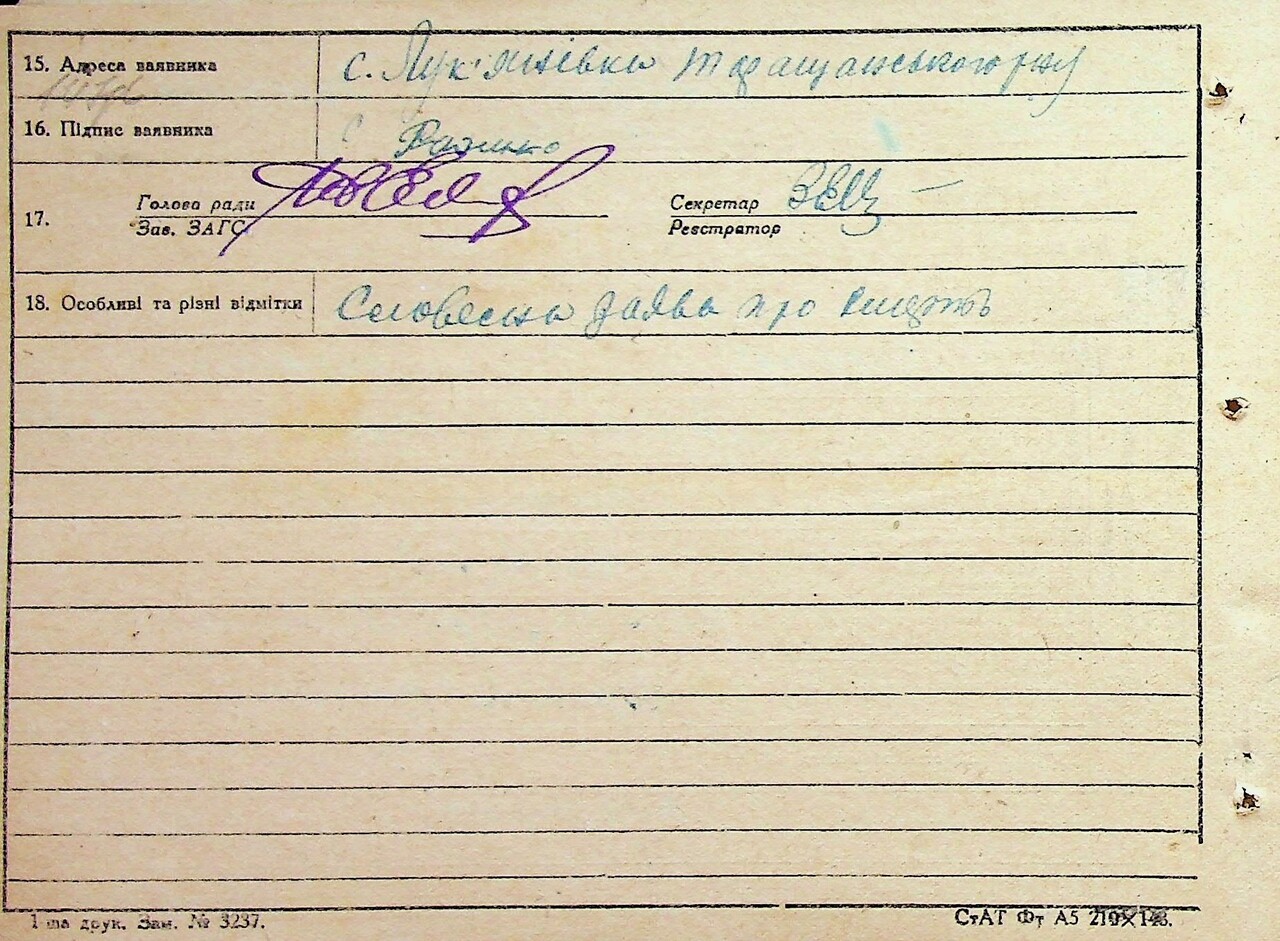 15. Адреса заявника с. Лук'янівка Таращанського р-ну
16. Підпис заявника
17. Голова ради Секретар
Зав. ЗАГС Реєстратор
18. Особливі та різні відмітки Словесна заява про смерть
1-ша друк. Зам. № 3237. СтАТ Фт А5 210×148.